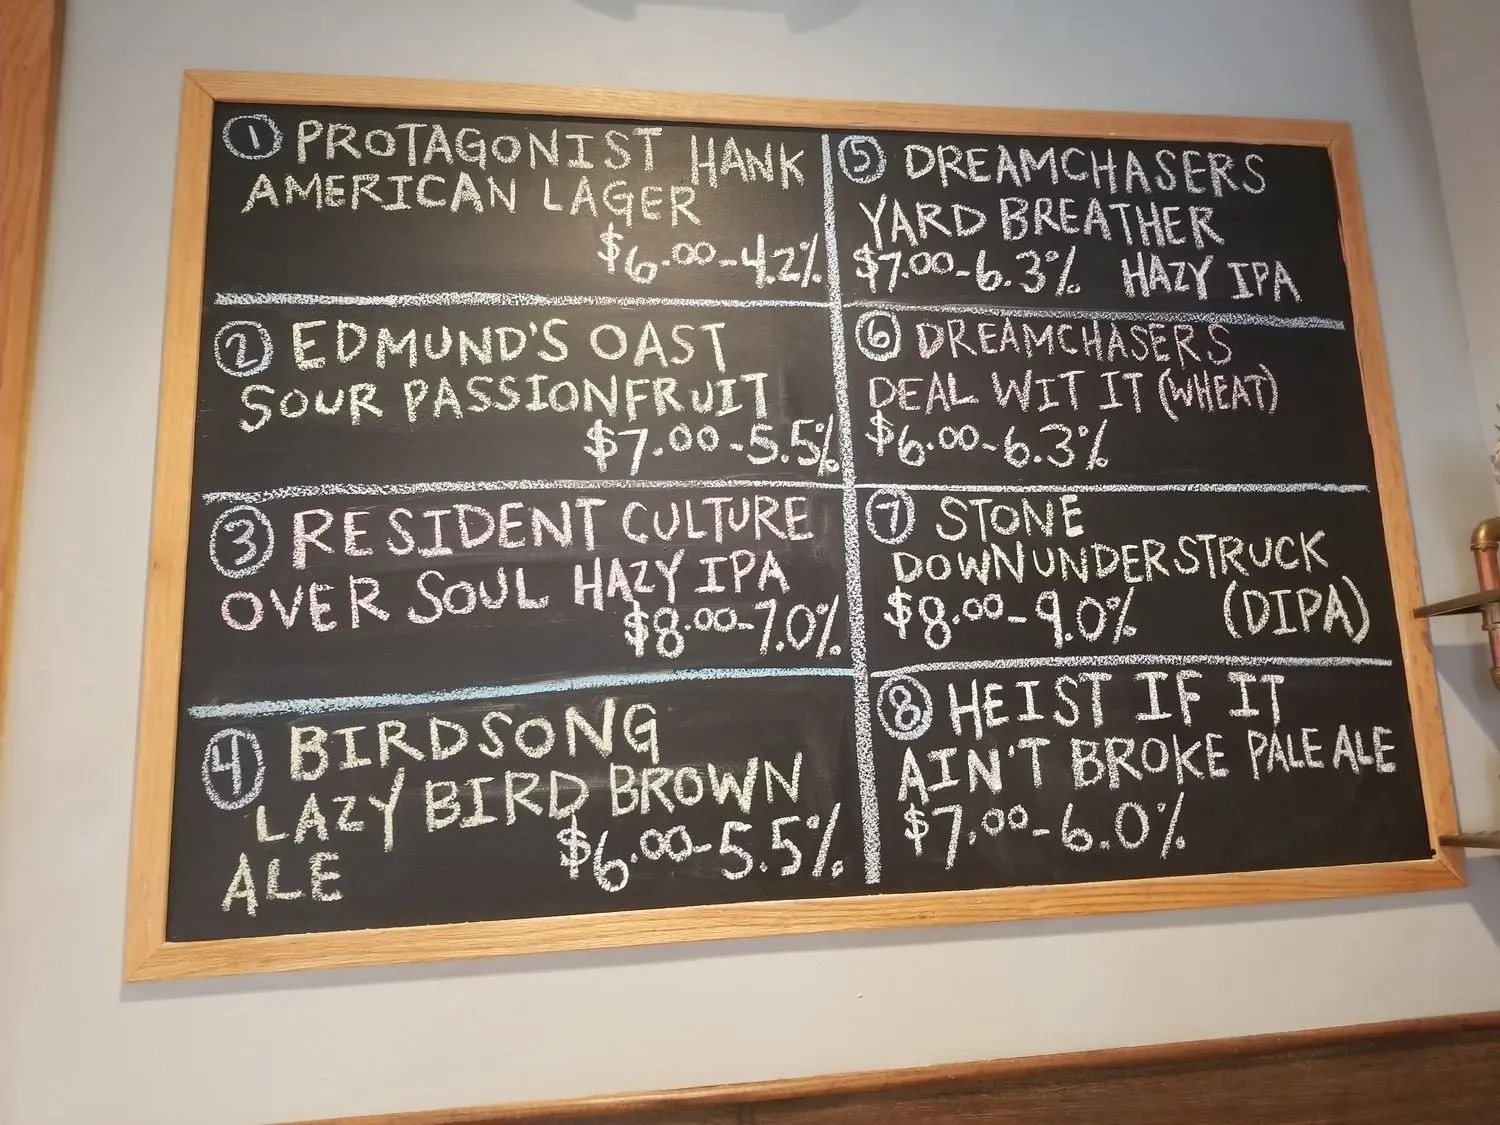 ① PROTAGONIST HANK
AMERICAN LAGER
$6.00-4.2%
② EDMUND'S OAST
SOUR PASSIONFRUIT
$7.00-5.5%
③ RESIDENT CULTURE
OVER SOUL HAZY IPA
$8.00-7.0%
④ BIRDSONG
LAZY BIRD BROWN
ALE $6.00-5.5%
⑤ DREAMCHASERS
YARD BREATHER
$7.00-6.3% HAZY IPA
⑥ DREAMCHASERS
DEAL WIT IT (WHEAT)
$6.00-6.3%
⑦ STONE
DOWNUNDERSTRUCK
$8.00-9.0% (DIPA)
⑧ HEIST IF IT
AIN'T BROKE PALE ALE
$7.00-6.0%